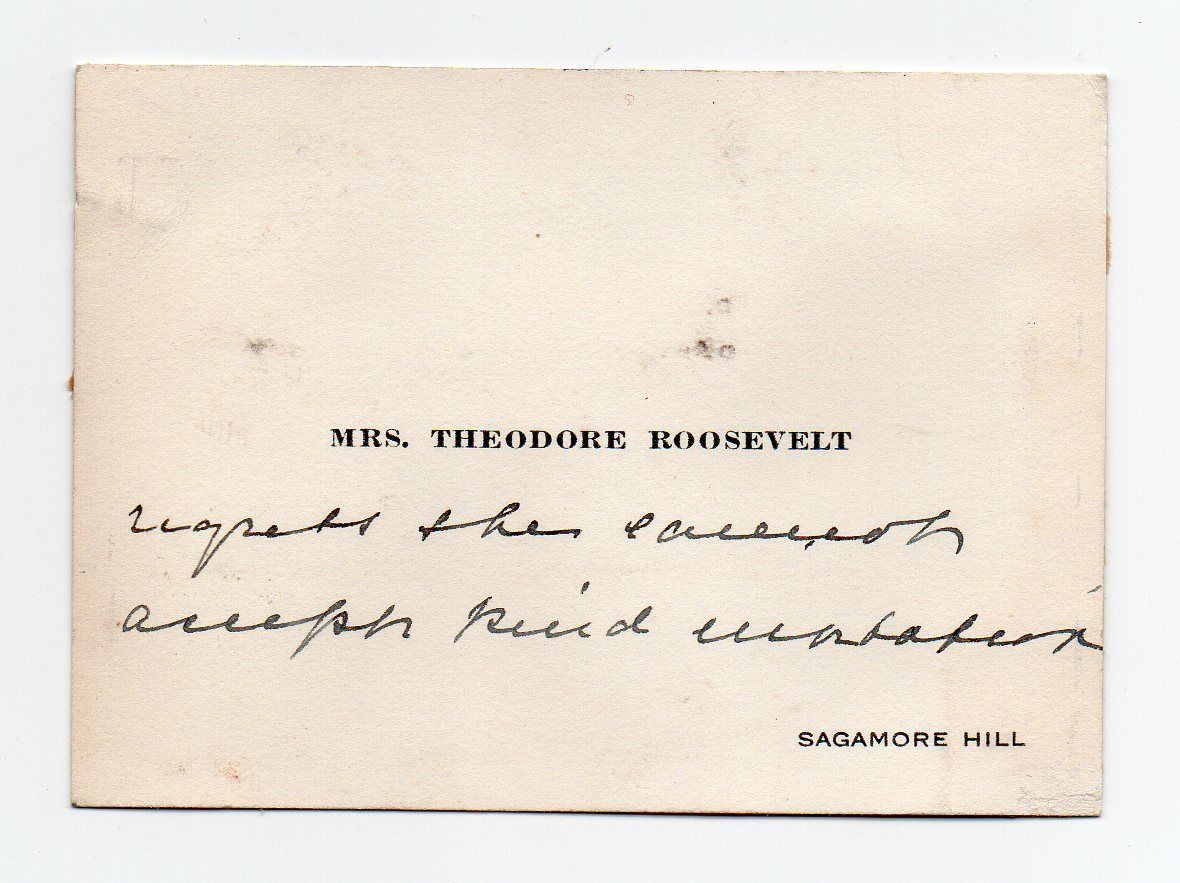 MRS. THEODORE ROOSEVELT
regrets she cannot
accept kind invitation
SAGAMORE HILL